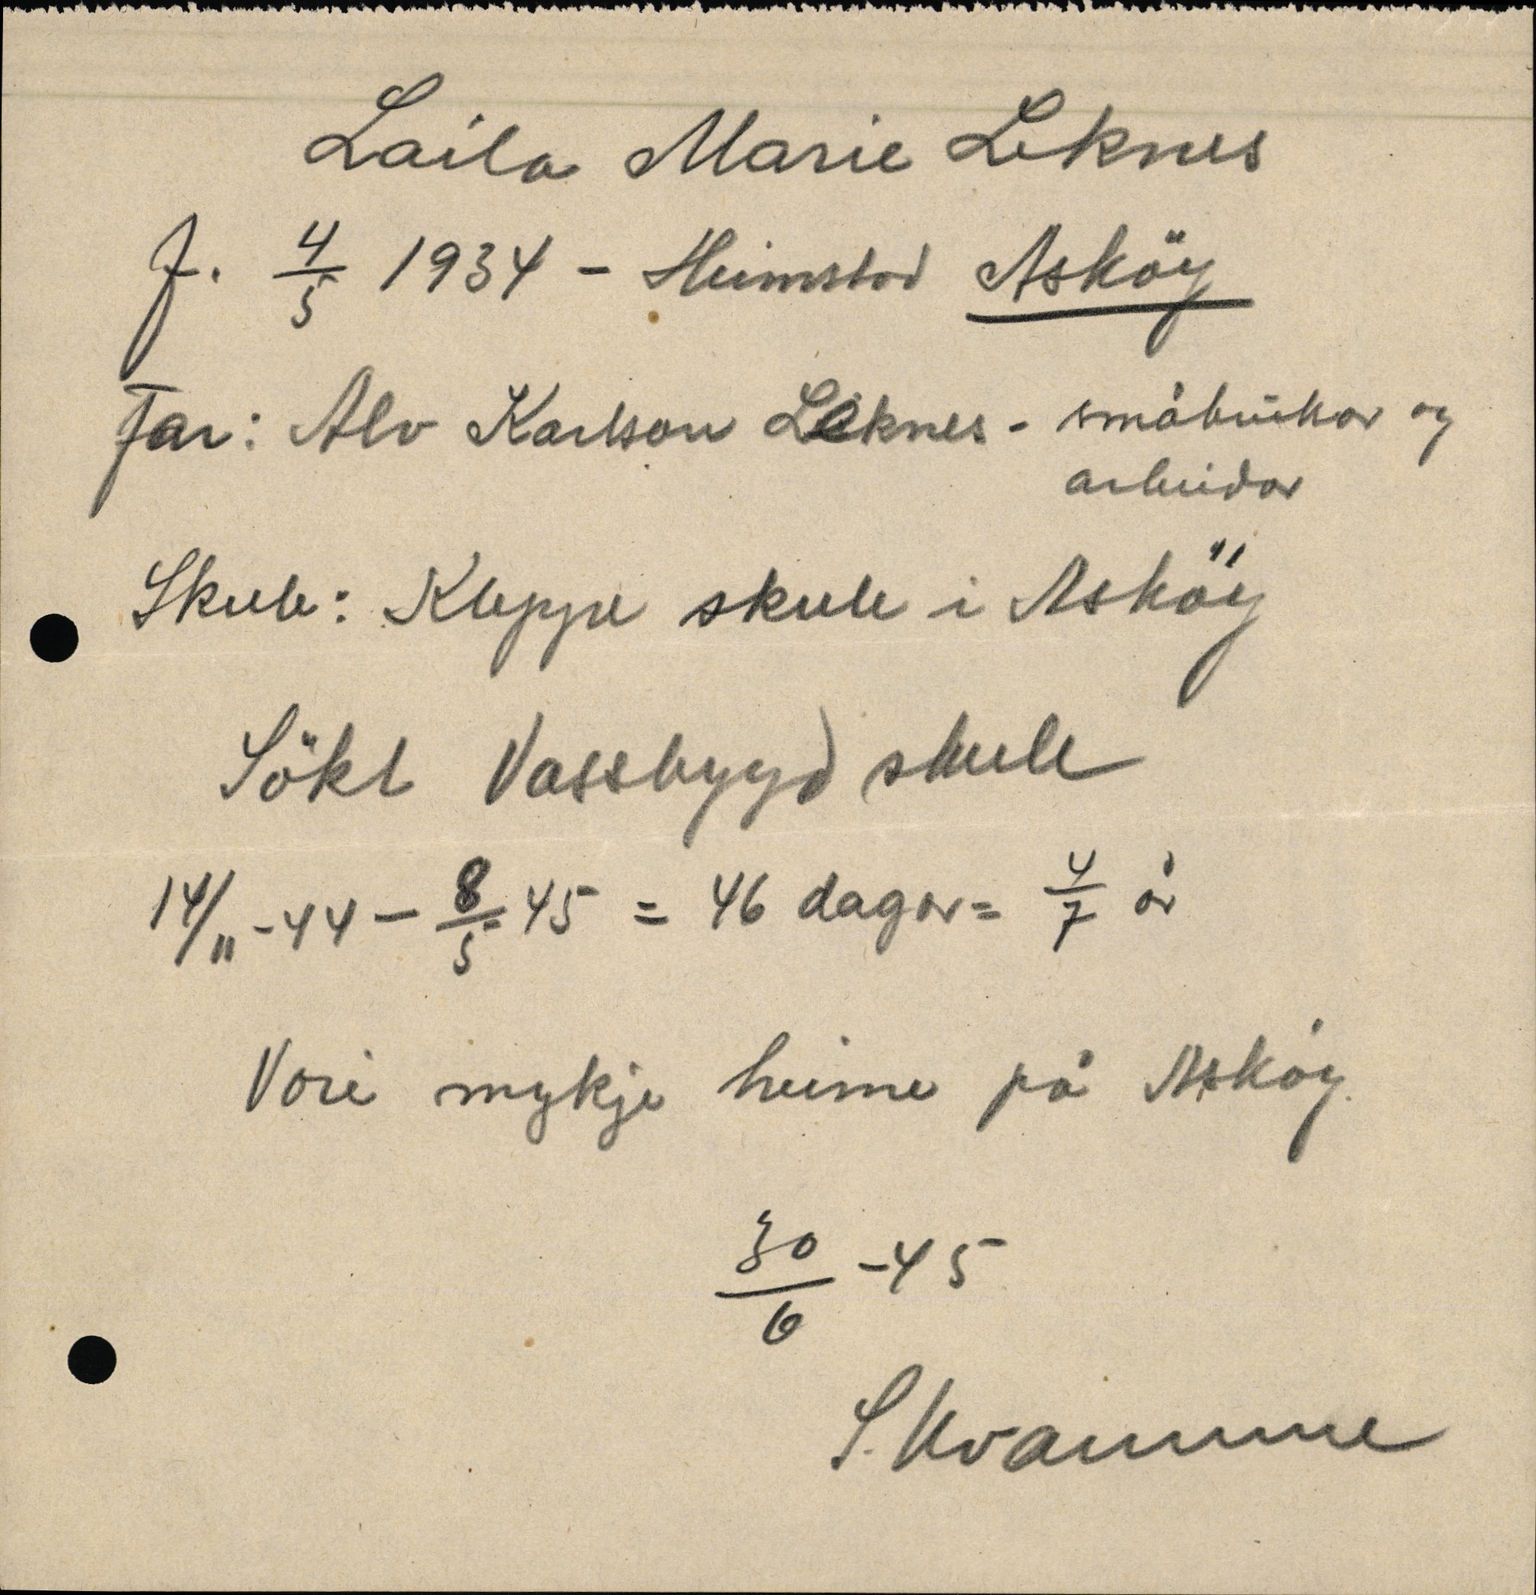 Laila Marie Leknes
f. 4/5 1934 - Heimstad Asköy
Far: Alv Karlson Leknes - småbrukar og
arbeidar
Skule: Kleppe skule i Asköy
Sökt Vassbygd skule
14/11 -44 - 8/5 45 = 46 dagar = 4/7 år
Vore mykje heime på Askøy.
30/6 -45
S. Kvamme